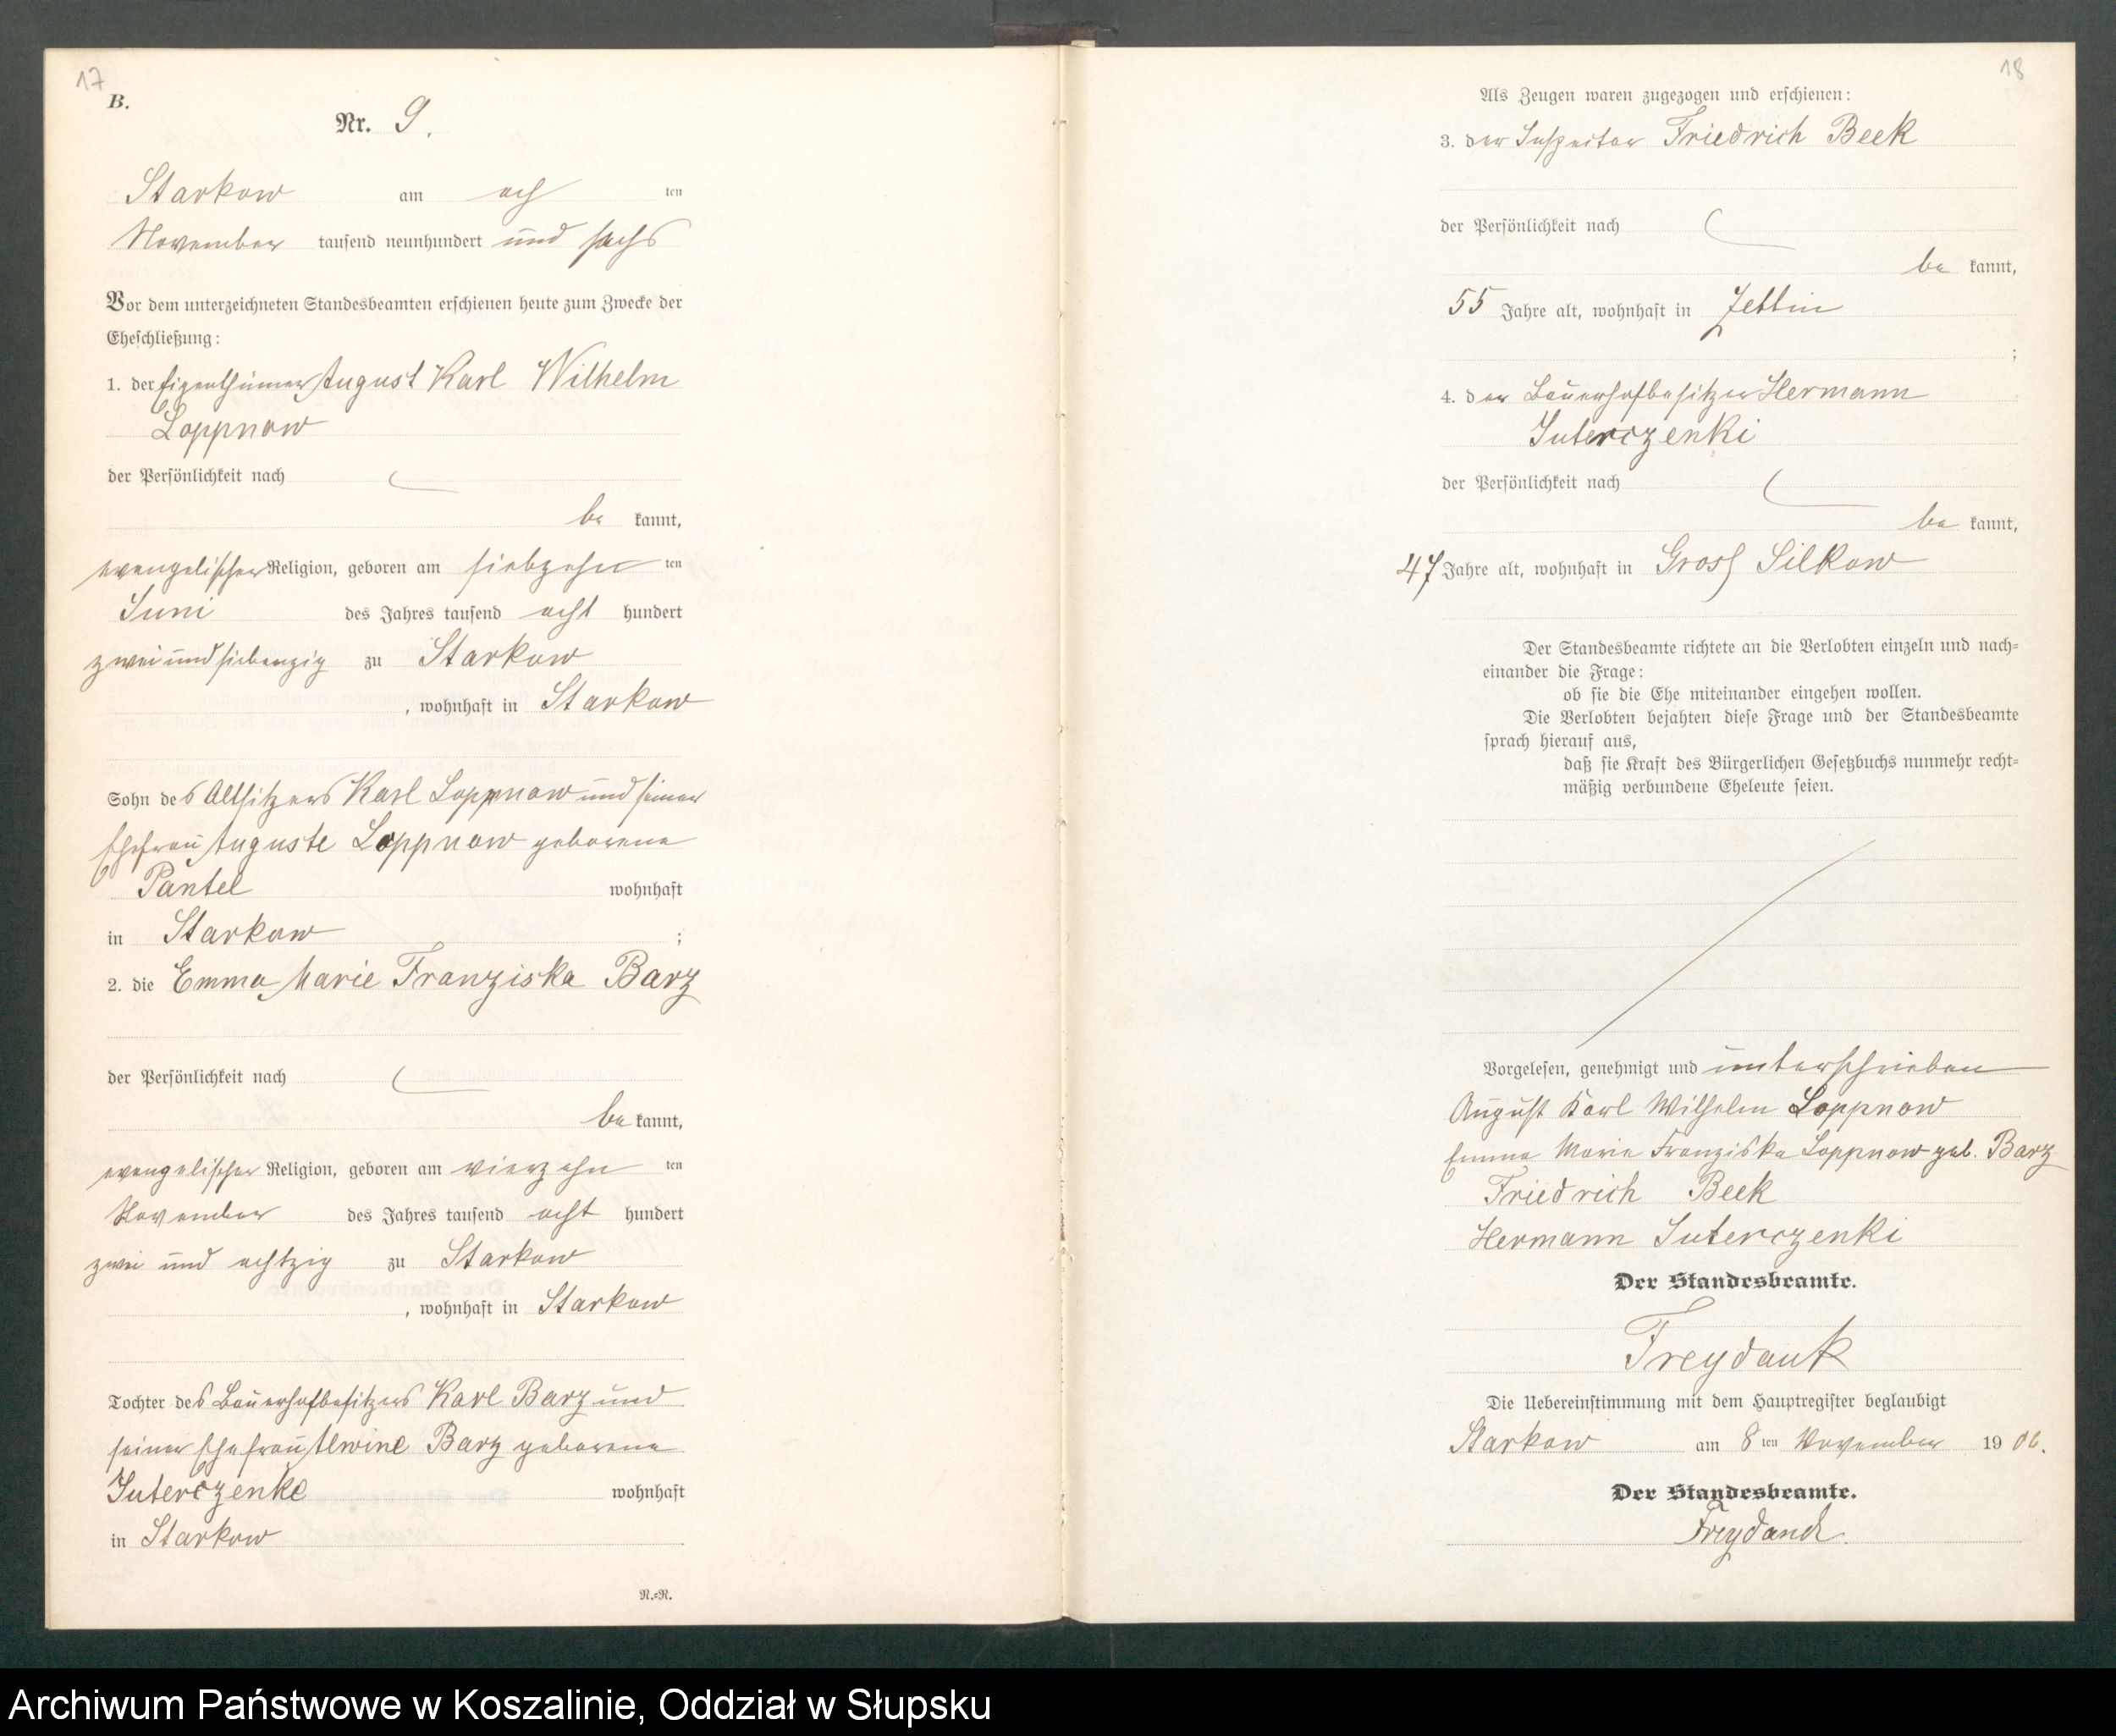 17
B.
Nr. 9.
Starkow am ach ten
November tausend neunhundert und sechs
Vor dem unterzeichneten Standesbeamten erschienen heute zum Zwecke der
Eheschließung:
1. der Eigenthümer August Karl Wilhelm
Loppnow
der Persönlichkeit nach
be kannt,
evangelischer Religion, geboren am siebzehn ten
Juni des Jahres tausend acht hundert
zwei und siebenzig zu Starkow
, wohnhaft in Starkow
Sohn des Altsitzers Karl Loppnow und seiner
Ehefrau Auguste Loppnow geborene
Pantel wohnhaft
in Starkow ;
2. die Emma Marie Franziska Barz
der Persönlichkeit nach
be kannt,
evangelischer Religion, geboren am vierzehn ten
November des Jahres tausend acht hundert
zwei und achtzig zu Starkow
, wohnhaft in Starkow
Tochter des Bauerhofbesitzers Karl Barz und
seiner Ehefrau Alwine Barz geborene
Juterczenke wohnhaft
in Starkow
N.=N.
18
Als Zeugen waren zugezogen und erschienen:
3. der Inspektor Friedrich Beek
der Persönlichkeit nach
be kannt,
55 Jahre alt, wohnhaft in Zettin
;
4. der Bauerhofbesitzer Hermann
Juterczenki
der Persönlichkeit nach
be kannt,
47 Jahre alt, wohnhaft in Gross Silkow
Der Standesbeamte richtete an die Verlobten einzeln und nach=
einander die Frage:
ob sie die Ehe miteinander eingehen wollen.
Die Verlobten bejahten diese Frage und der Standesbeamte
sprach hierauf aus,
daß sie Kraft des Bürgerlichen Gesetzbuchs nunmehr recht=
mäßig verbundene Eheleute seien.
Vorgelesen, genehmigt und unterschrieben
August Karl Wilhelm Loppnow
Emma Marie Franziska Loppnow geb. Barz
Friedrich Beek
Hermann Juterczenki
Der Standesbeamte.
Freydank
Die Uebereinstimmung mit dem Hauptregister beglaubigt
Starkow am 8 ten November 19 06.
Der Standesbeamte.
Freydank.
Archiwum Państwowe w Koszalinie, Oddział w Słupsku